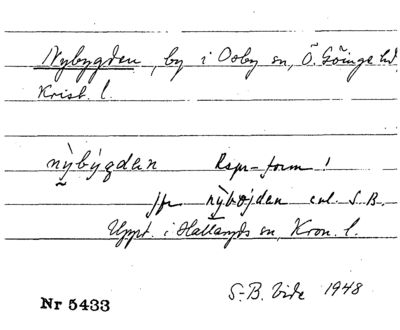 Nybygden, by i Osby sn, Ö. Göinge hd,
Krist. l.
nỳbýgdan Rspr-form!
jfr nỳbýjdan enl. S.B.
Uppt. i Hallaryds sn, Kron. l.
S-B. Vide 1948
Nr 5433